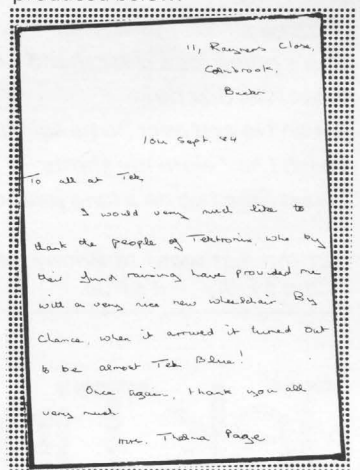 produced below.
11, Rayners Close,
Colnbrook,
Bucks
10th Sept. 84
To all at Tek,
I would very much like to
thank the people of Tektronix, who by
their fund raising have provided me
with a very nice new wheelchair. By
chance, when it arrived it turned out
to be almost Tek Blue!
Once again, thank you all
very much.
Mrs. Thelma Page